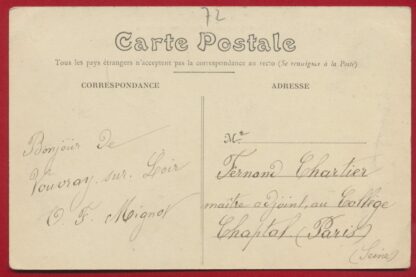 72
Carte Postale
Tous les pays étrangers n'acceptent pas la correspondance au recto (Se renseigner à la Poste)
CORRESPONDANCE
ADRESSE
Bonjour de
Vouvray-sur-Loir
F. Mignot
M.
Fernand Chartier
maître adjoint, au Collège
Chaptal (Paris)
(Seine)